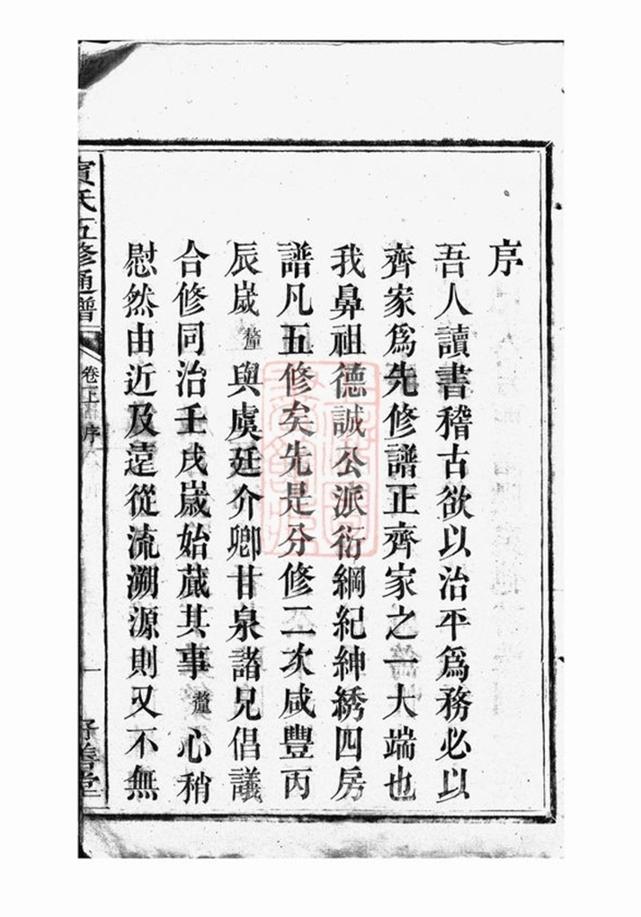 序
吾人讀書稽古欲以治平爲務必以
齊家爲先修譜正齊家之一大端也
我鼻祖德誠公派衍綱紀紳綉四房
譜凡五修矣先是分修二次咸豐丙
辰嵗釐與虞廷介卿甘泉諸兄倡議
合修同治壬戌嵗始蕆其事釐心稍
慰然由近及遠從流溯源則又不無
氏五修通譜
卷上 序
一
善堂